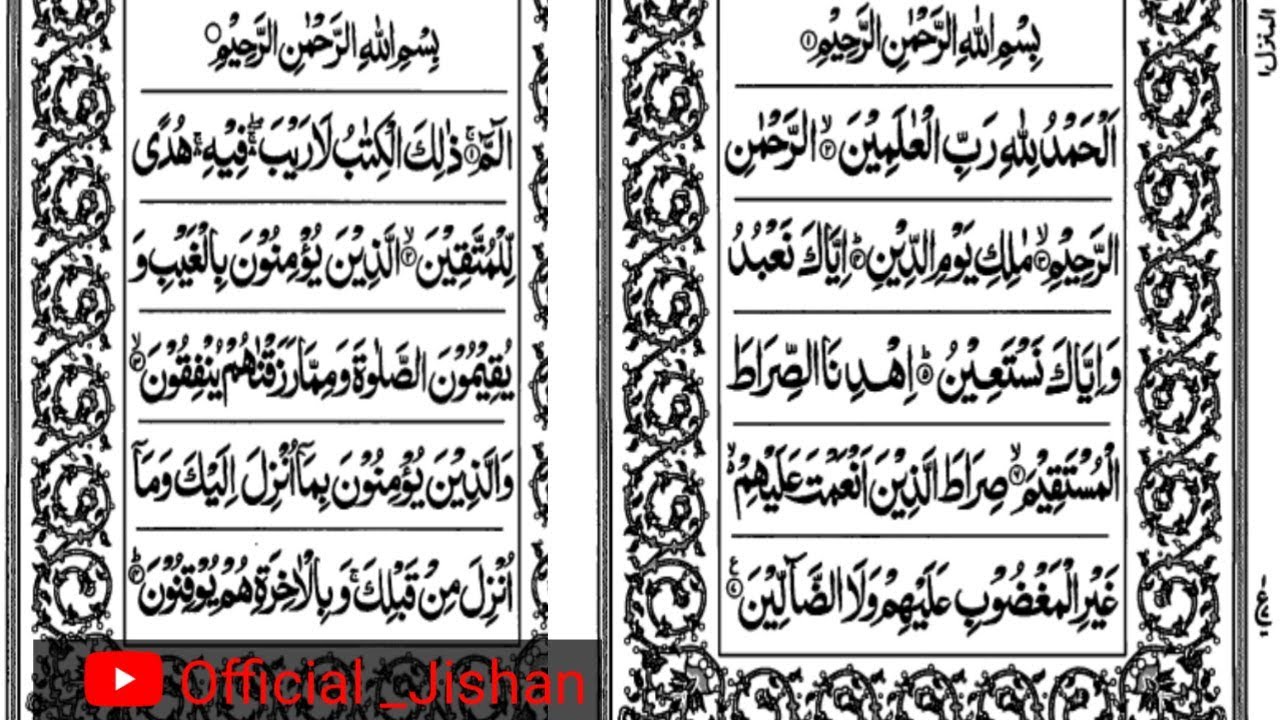 بِسْمِ اللهِ الرَّحْمٰنِ الرَّحِيْمِ ۝۱
اَلْحَمْدُ لِلّٰهِ رَبِّ الْعٰلَمِيْنَ ۙ۝۲ الرَّحْمٰنِ
الرَّحِيْمِ ۙ۝۳ مٰلِكِ يَوْمِ الدِّيْنِ ؕ۝۴ اِيَّاكَ نَعْبُدُ
وَاِيَّاكَ نَسْتَعِيْنُ ؕ۝۵ اِهْدِنَا الصِّرَاطَ
الْمُسْتَقِيْمَ ۙ صِرَاطَ الَّذِيْنَ اَنْعَمْتَ عَلَيْهِمْ ۙ
غَيْرِ الْمَغْضُوْبِ عَلَيْهِمْ وَلَا الضَّآلِّيْنَ
المنزل ۱
بِسْمِ اللهِ الرَّحْمٰنِ الرَّحِيْمِ ۝
الٓمّٓ ۚ۝۱ ذٰلِكَ الْكِتٰبُ لَا رَيْبَ ۛۖ فِيْهِ ۛۚ هُدًى
لِّلْمُتَّقِيْنَ ۙ۝۲ الَّذِيْنَ يُؤْمِنُوْنَ بِالْغَيْبِ وَ
يُقِيْمُوْنَ الصَّلٰوةَ وَمِمَّا رَزَقْنٰهُمْ يُنْفِقُوْنَ ۙ۝۳
وَالَّذِيْنَ يُؤْمِنُوْنَ بِمَآ اُنْزِلَ اِلَيْكَ وَمَآ
اُنْزِلَ مِنْ قَبْلِكَ ۚ وَبِالْاٰخِرَةِ هُمْ يُوْقِنُوْنَ ؕ۝۴
Official _Jishan